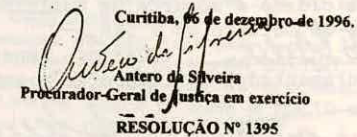 Curitiba, 06 de dezembro de 1996.
Antero da Silveira
Procurador-Geral de Justiça em exercício
RESOLUÇÃO Nº 1395